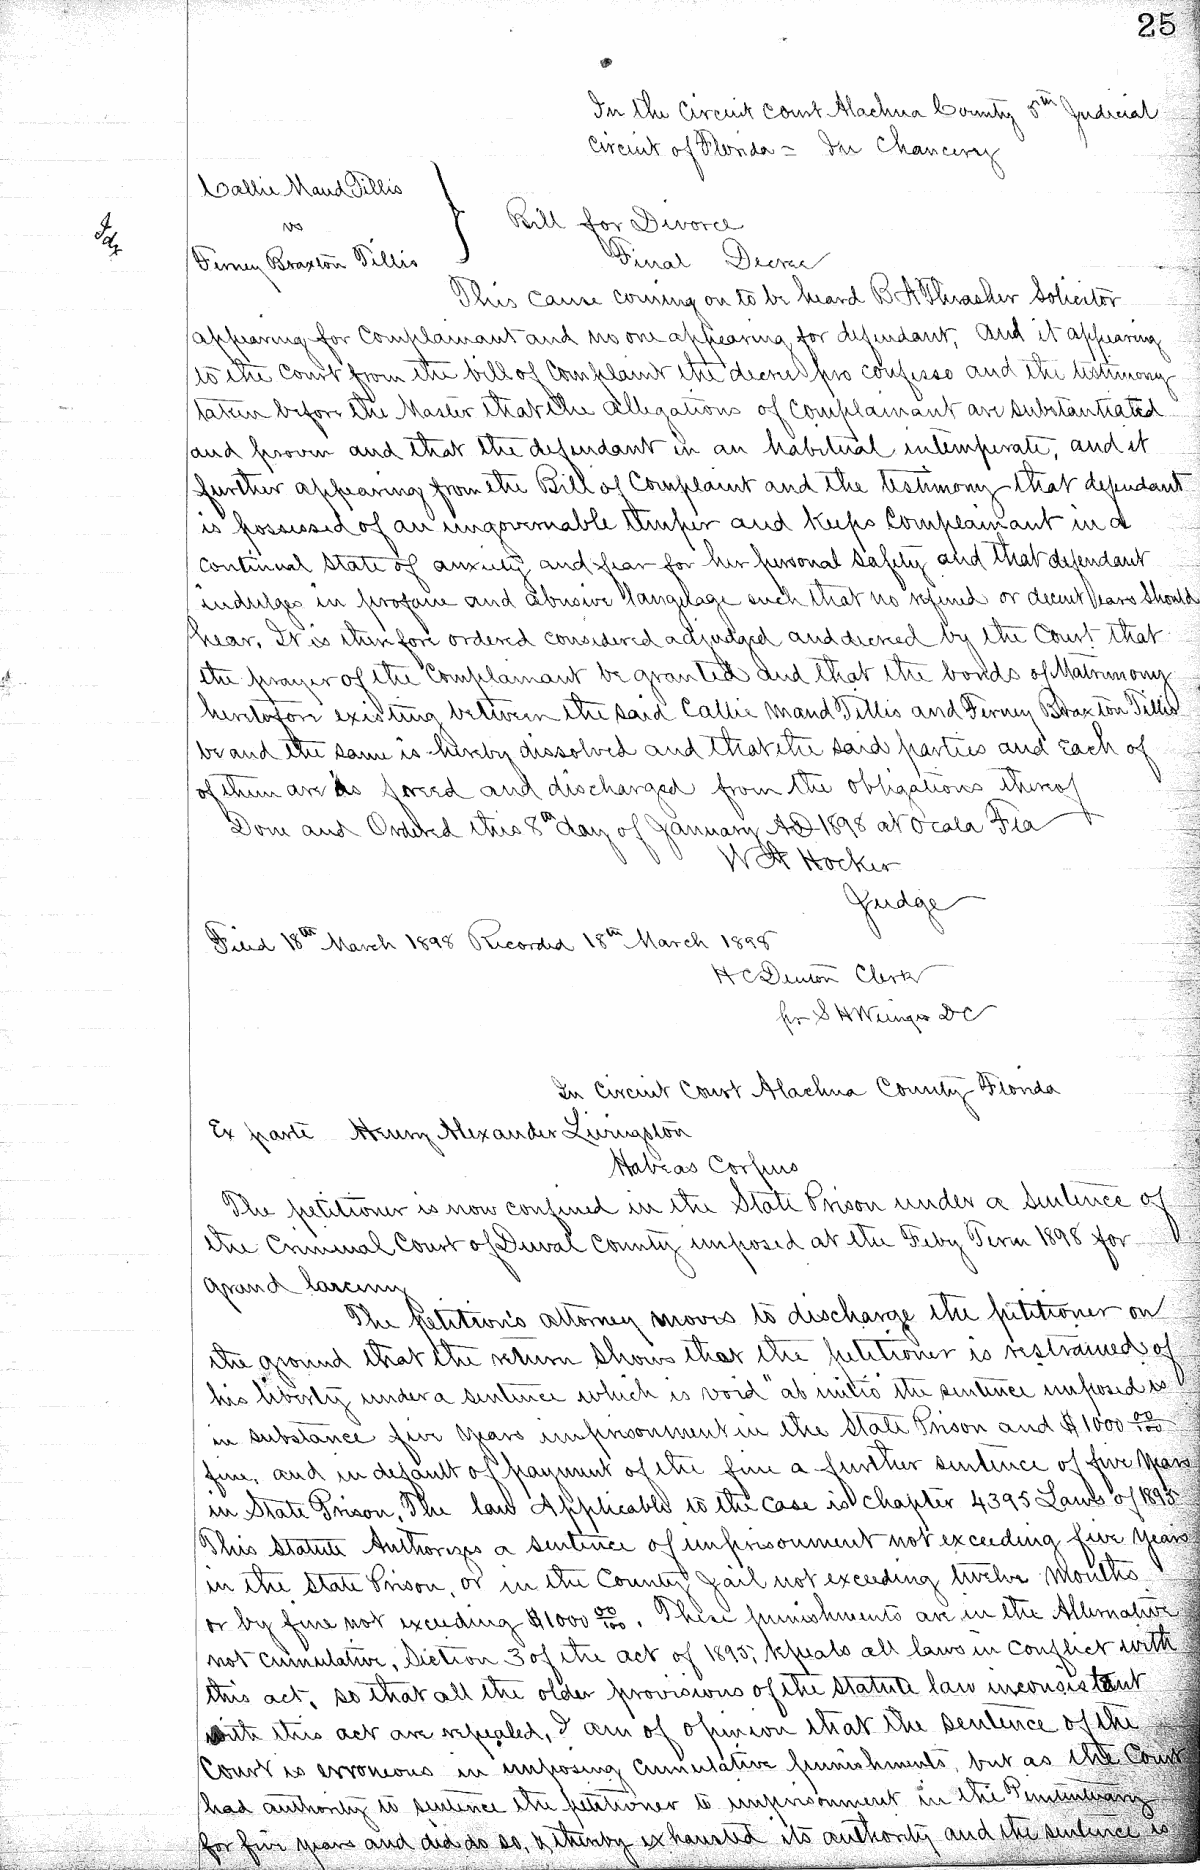 25
In the Circuit Court Alachua County 5th Judicial
Circuit of Florida = In Chancery
Callie Maud Tillis
vs
Ferney Braxton Tillis
Bill for Divorce
Final Decree
This cause coming on to be heard B A Thrasher Solicitor
appearing for Complainant and no one appearing for defendant, and it appearing
to the Court from the bill of Complaint the decree pro confesso and the testimony
taken before the Master that the allegations of Complainant are substantiated
and proven and that the defendant is an habitual intemperate, and it
further appearing from the Bill of Complaint and the testimony that defendant
is possessed of an ungovernable temper and keeps Complainant in a
continual state of anxiety and fear for her personal safety and that defendant
indulges in profane and abusive language such that no refined or decent ears should
hear. It is therefore ordered considered adjudged and decreed by the Court that
the prayer of the Complainant be granted and that the bonds of Matrimony
heretofore existing between the said Callie Maud Tillis and Ferney Braxton Tillis
be and the same is hereby dissolved and that the said parties and Each of
of them are is freed and discharged from the obligations thereof
Done and Ordered this 8th day of January AD 1898 at Ocala Fla
W A Hocker
Judge
Filed 18th March 1898 Recorded 18th March 1898
H C Denton Clerk
pr S H Wienges DC
In Circuit Court Alachua County Florida
Ex parte Henry Alexander Livingston
Habeas Corpus
The petitioner is now confined in the State Prison under a sentence of
the Criminal Court of Duval County imposed at the Feby Term 1898 for
grand larceny
The petition's attorney moves to discharge the petitioner on
the ground that the return shows that the petitioner is restrained of
his liberty under a sentence which is void "ab initio" the sentence imposed is
in substance five years imprisonment in the State Prison and $1000 00/100
fine, and in default of payment of the fine a further sentence of five years
in State Prison, The law Applicable to the case is chapter 4395 Laws of 1895
This statute Authorizes a sentence of imprisonment not exceeding five years
in the State Prison, or in the County Jail not exceeding twelve Months
or by fine not exceeding $1000 00/100. These punishments are in the Alternative
not cumulative, Section 3 of the act of 1895, repeals all laws in conflict with
this act, so that all the older provisions of the statute law inconsistent
with this act are repealed, I am of opinion that the sentence of the
Court is erroneous in imposing cumulative punishments, but as the Court
had authority to sentence the petitioner to imprisonment in the Penitentiary
for five years and did do so, & thereby exhausted its authority and the sentence is